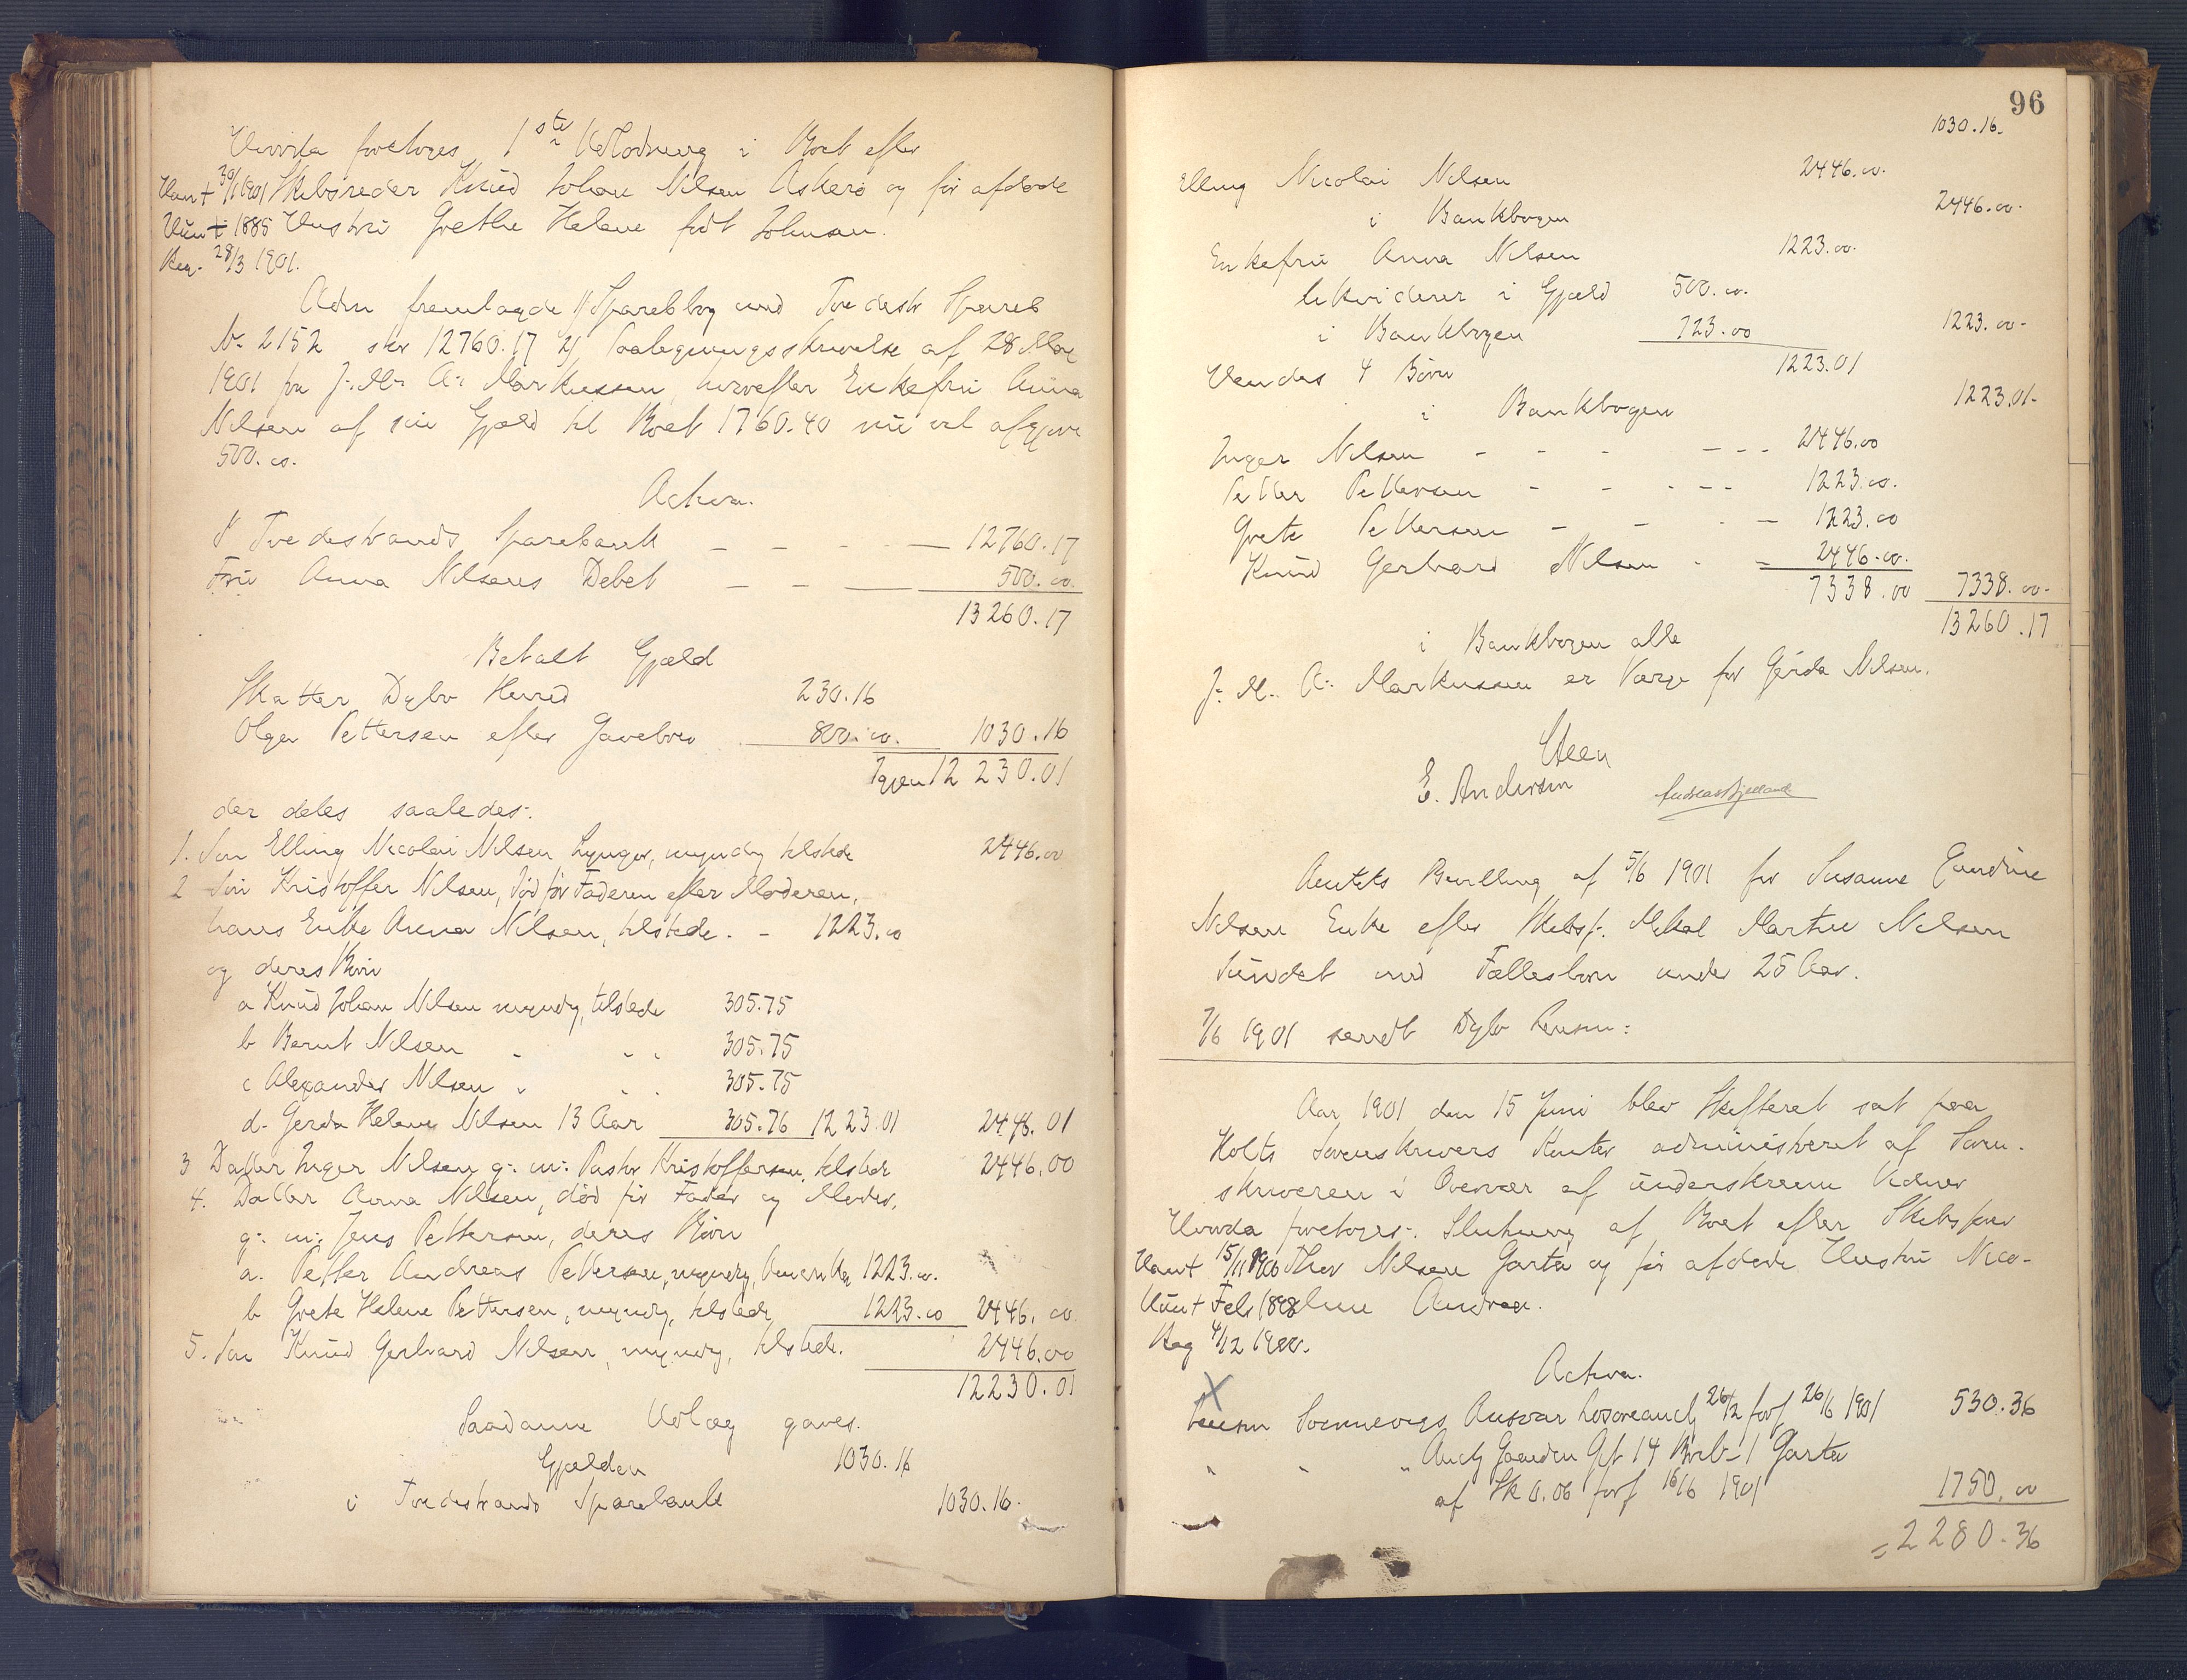 Hvorda foretoges 1ste Udlodning i Boet efter
Han † 30/1 1901 Skibsreder Knud Johan Nilsen Askerø og før afdøde
Hun † 1885 Hustru Grethe Helene født Johnsen.
Reg. 28/3 1901.
Adm fremlagde 1/ Sparebbog med Tvedestr Spareb
No 2152 stor 12760.17 2/ Paategningsskrivelse af 28 Mai
1901 fra J. M. A. Markussen hvorefter Enkefru Anna
Nilsen af sin Gjæld til Boet 1760.40 nu vil afgjøre
500.00.
Activa.
I Tvedestrands Sparebank — — — 12760.17
Fru Anna Nilsens Debet — — — 500.00
13260.17
Betalt Gjæld
Skatter Dybv Herred 230.16
Olga Pettersen efter Gavebrev 800.00. 1030.16
Igjen 12 230.01
der deles saaledes:
1. Søn Elling Nicolai Nilsen Lyngør, myndig tilstede 2446.00
2 Søn Kristoffer Nilsen, død før Faderen efter Moderen,
hans Enke Anna Nilsen, tilstede. - 1223.00
og deres Børn
a Knud Johan Nilsen myndig, tilstede 305.75
b Bernt Nilsen - - - 305.75
c Alexander Nilsen - - 305.75
d. Gerda Helene Nilsen 13 Aar 305.76 1223.01 2446.01
3 Datter Inger Nilsen g. m. Pastor Kristoffersen, tilstede 2446.00
4. Datter Anna Nilsen, død før Fader og Moder,
g. m. Jens Pettersen, deres Børn
a. Petter Andreas Pettersen, myndig, Amerika 1223.00.
b Grete Helene Pettersen, myndig, tilstede 1223.00 2446.00.
5. Søn Knud Gerhard Nilsen, myndig, tilstede. 2446.00
12230.01
Saadanne Udlæg gaves.
Gjælden 1030.16
i Tvedestrands Sparebank 1030.16.
96
1030.16.
Elling Nicolai Nilsen 2446.00.
i Bankbogen 2446.00.
Enkefru Anna Nilsen 1223.00.
likviderer i Gjæld 500.00.
i Bankbogen 723.00 1223.00.
Hendes 4 Børn 1223.01
i Bankbogen 1223.01.
Inger Nilsen - - - - - - 2446.00
Petter Pettersen - - - - - 1223.00.
Grete Pettersen - - - - 1223.00
Knud Gerhard Nilsen - - 2446.00.
7338.00 7338.00.
13260.17
i Bankbogen alle
J. M. A. Markussen er Værge for Gerda Nilsen.
Steen
E. Andersen
Amtets Bevilling af 5/6 1901 for Susanne Gundine
Nilsen Enke efter Skibsf. Mikal Martin Nilsen
Sundet med Fællesbørn under 25 Aar.
7/6 1901 sendt Dybv Lensm:
Aar 1901 den 15 Juni blev Skifteret sat paa
Holts Sorenskrivers Kontor administreret af Soren-
skriveren i Overvær af underskrevne Vidner
Hvorda foretoges: Slutning af Boet efter Skibsfører
Han † 15/11 1900 Thor Nilsen Garta og før afdøde Hustru Nico-
Hun † Feb 1898 line Andrea.
Reg 4/12 1900.
Activa.
X
Lensm Sørensens Ansvar Løsøreauct 26/2 forf 26/6 1901 530.36
" " " Auct Gaarden Gr 14 Br b-1 Garta
af Sk 0.06 forf 16/6 1901 1750.00
= 2280.36